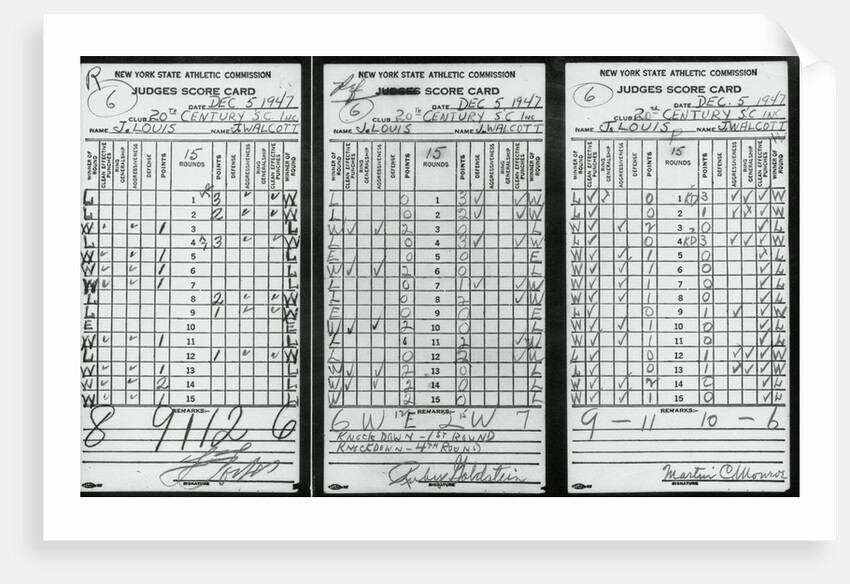 R
6
NEW YORK STATE ATHLETIC COMMISSION
JUDGES SCORE CARD
DATE DEC 5, 1947
CLUB 20TH CENTURY S.C. INC
NAME Jo LOUIS NAME J. WALCOTT
WINNER OF ROUND CLEAN EFFECTIVE PUNCHES RING GENERALSHIP AGGRESSIVENESS DEFENSE POINTS 15 ROUNDS POINTS DEFENSE AGGRESSIVENESS RING GENERALSHIP CLEAN EFFECTIVE PUNCHES WINNER OF ROUND
L 1 3 ✓ ✓ W
L 2 2 ✓ ✓ W
W ✓ ✓ 1 3 L
L 4 3 ✓ ✓ W
W ✓ ✓ 1 5 L
W ✓ ✓ 1 6 L
W ✓ ✓ 1 7 L
L 8 2 ✓ ✓ W
L 9 1 ✓ ✓ W
E 10 E
W ✓ ✓ 1 11 L
L 12 1 ✓ ✓ W
W ✓ ✓ 1 13 L
W ✓ ✓ 2 14 L
W ✓ ✓ 1 15 L
REMARKS:-
8 9 1 12 6
SIGNATURE
6
NEW YORK STATE ATHLETIC COMMISSION
JUDGES SCORE CARD
DATE DEC 5, 1947
CLUB 20th CENTURY S.C. INC
NAME Jo LOUIS NAME J. WALCOTT
WINNER OF ROUND CLEAN EFFECTIVE PUNCHES RING GENERALSHIP AGGRESSIVENESS DEFENSE POINTS 15 ROUNDS POINTS DEFENSE AGGRESSIVENESS RING GENERALSHIP CLEAN EFFECTIVE PUNCHES WINNER OF ROUND
L 0 1 3 ✓ ✓ W
L 0 2 2 ✓ ✓ W
W ✓ ✓ 2 3 0 L
L 0 4 3 ✓ ✓ W
E 0 5 0 E
W ✓ ✓ 2 6 0 L
L 0 7 1 ✓ ✓ W
L 0 8 2 ✓ W
E 0 9 0 E
W ✓ ✓ 2 10 0 L
L 11 2 ✓ W
L 0 12 2 ✓ W
W ✓ ✓ 2 13 0 L
W ✓ ✓ 2 14 0 L
W 2 15 0 L
REMARKS:-
6 W 12 E 2 15 W 7
KNOCK DOWN - 1ST ROUND
KNOCKDOWN - 4TH ROUND
Ruby Goldstein
SIGNATURE
6
NEW YORK STATE ATHLETIC COMMISSION
JUDGES SCORE CARD
DATE DEC. 5, 1947
CLUB CENTURY S.C. INC.
NAME Jo LOUIS NAME J. WALCOTT
WINNER OF ROUND CLEAN EFFECTIVE PUNCHES RING GENERALSHIP AGGRESSIVENESS DEFENSE POINTS 15 ROUNDS POINTS DEFENSE AGGRESSIVENESS RING GENERALSHIP CLEAN EFFECTIVE PUNCHES WINNER OF ROUND
L ✓ 0 1 KD 3 ✓ ✓ ✓ W
L ✓ 0 2 1 ✓ ✓ W
W ✓ ✓ 2 3 0 ✓ L
L ✓ 0 4 KD 3 ✓ ✓ ✓ W
W ✓ ✓ 1 5 0 L
W ✓ ✓ 1 6 0 ✓ L
W ✓ ✓ 1 7 0 ✓ L
W ✓ ✓ 1 8 0 ✓ L
L ✓ 0 9 1 ✓ ✓ W
W ✓ ✓ 1 10 0 ✓ L
W ✓ ✓ 1 11 0 ✓ L
L ✓ 0 12 1 ✓ ✓ ✓ W
L ✓ 0 13 1 ✓ ✓ ✓ W
W ✓ ✓ 2 14 0 ✓ L
W ✓ ✓ 1 15 0 ✓ L
REMARKS:-
9 - 11 10 - 6
Martin C. Monroe
SIGNATURE